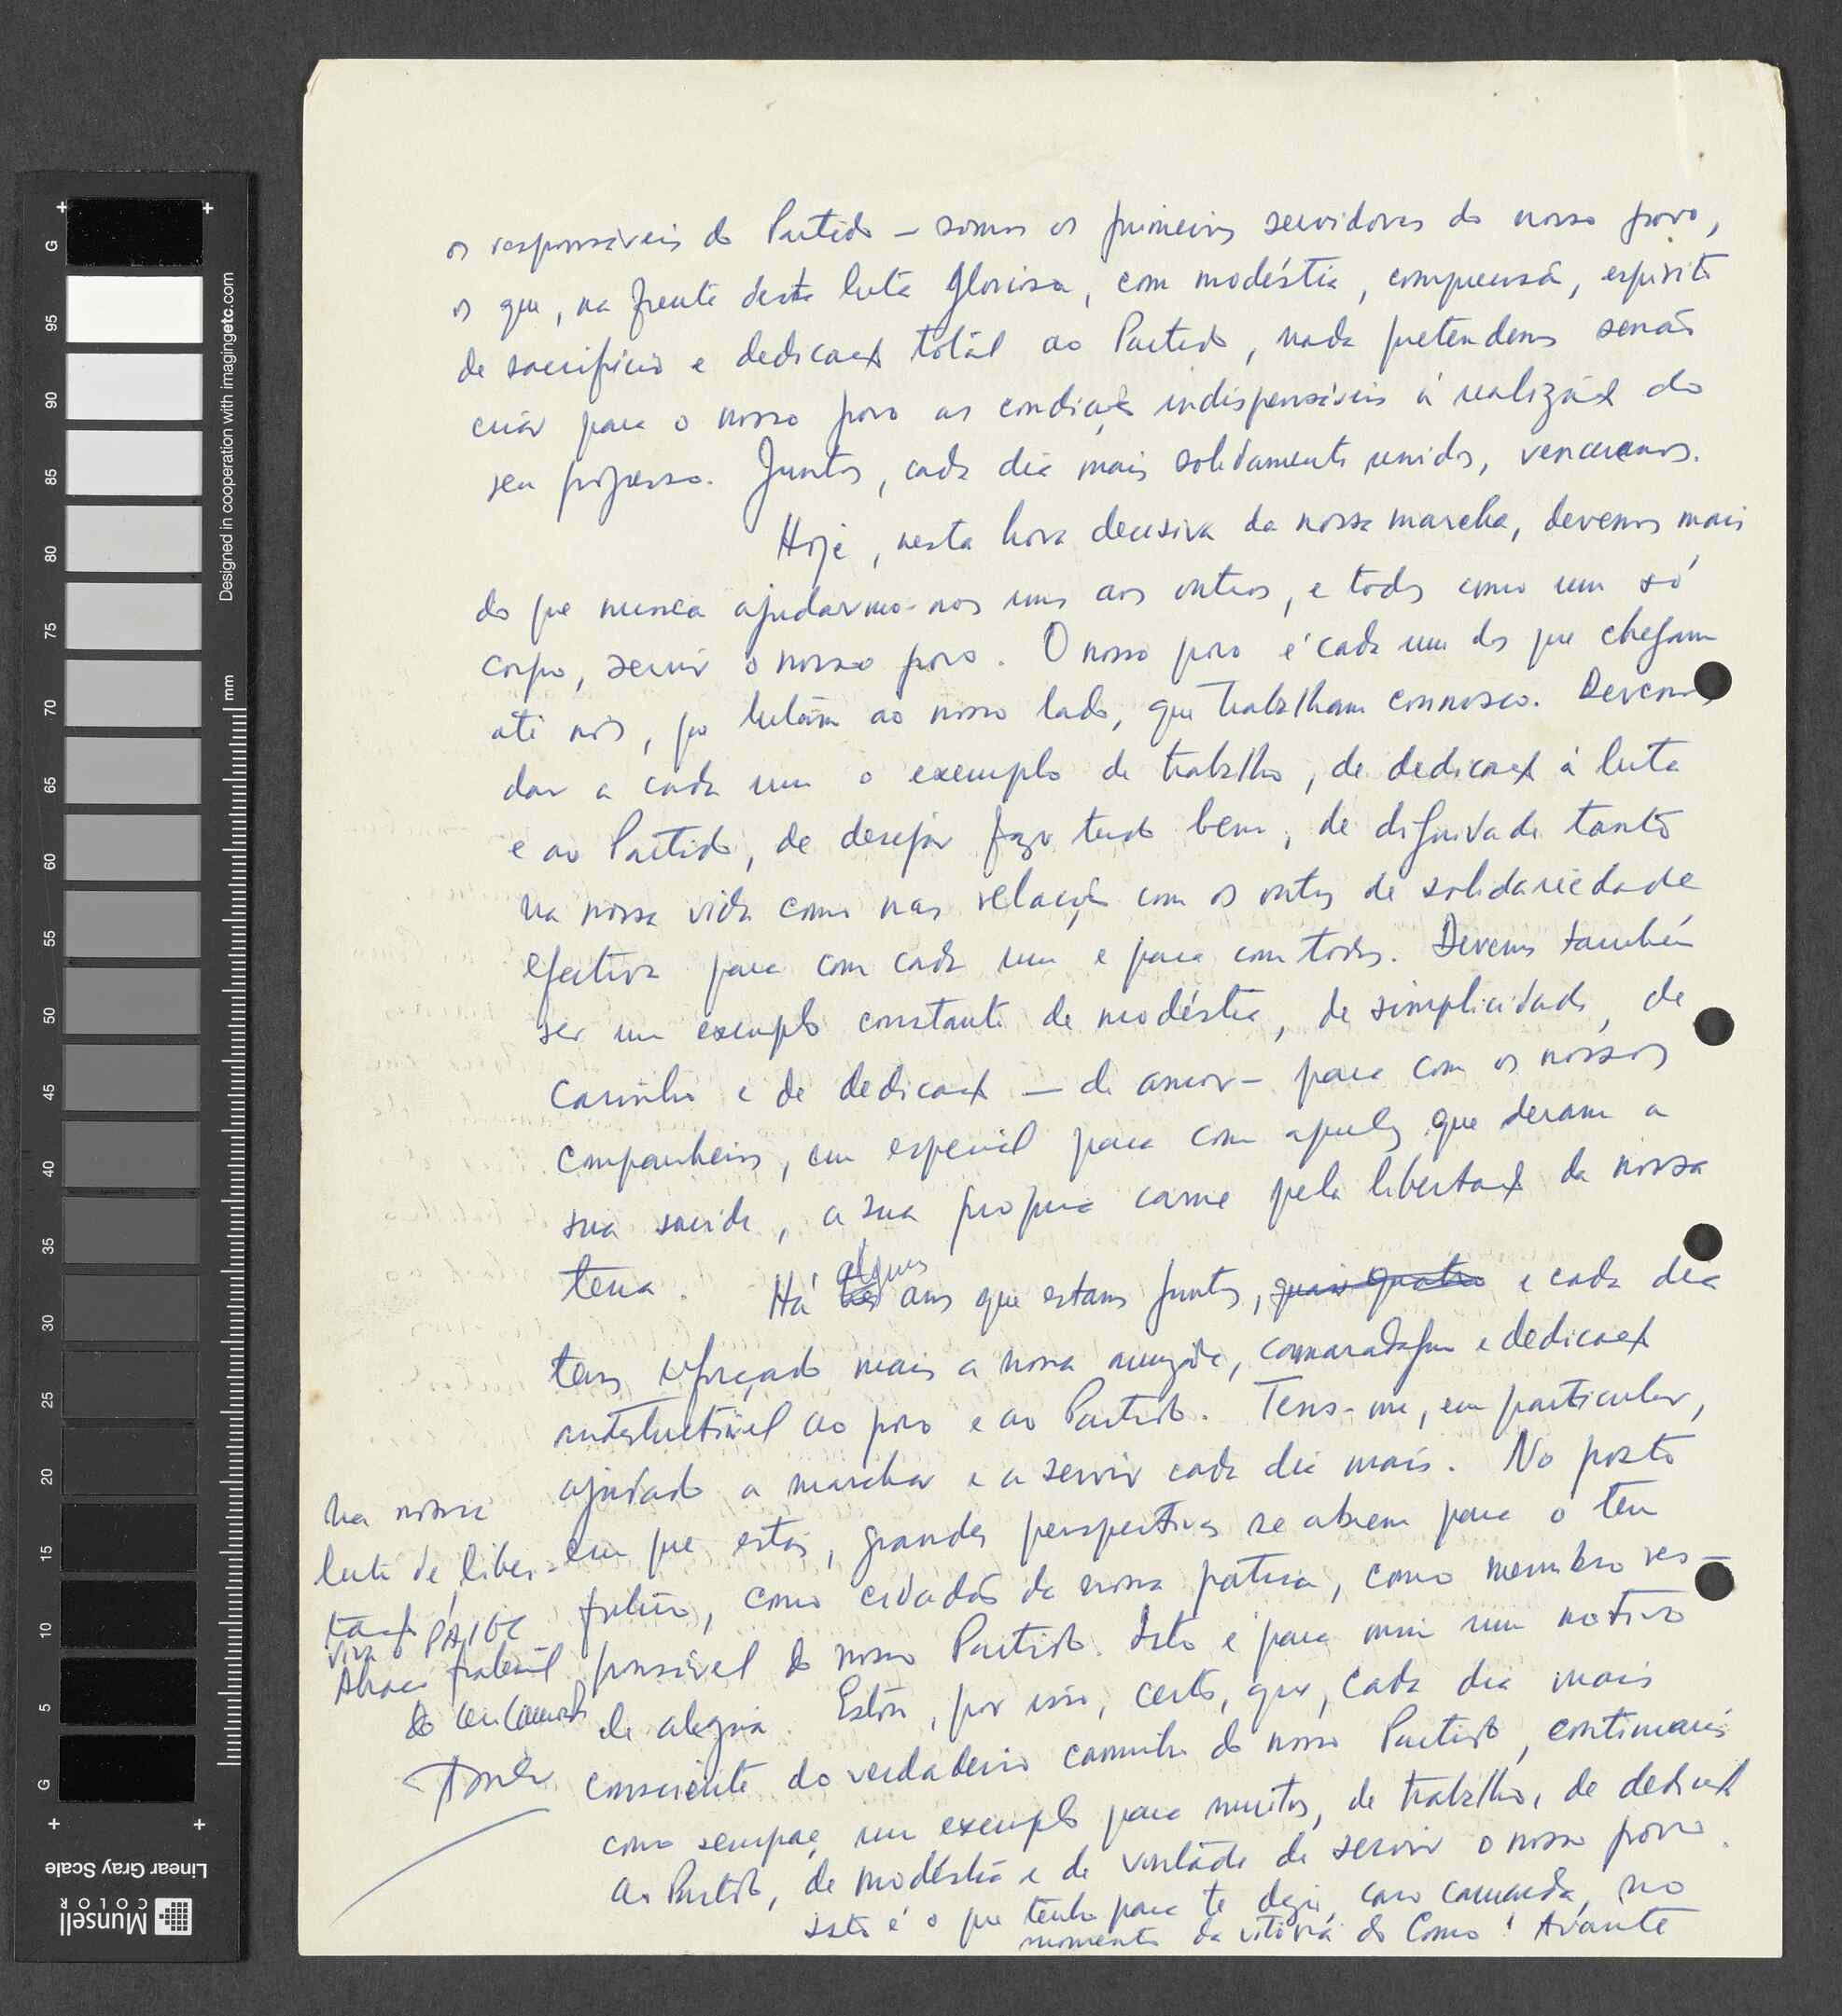 os responsáveis do Partido — somos os primeiros servidores do nosso povo,
os que, na frente desta luta gloriosa, com modéstia, compreensão, espírito
de sacrifício e dedicação total ao Partido, nada pretendemos senão
criar para o nosso povo as condições indispensáveis à realização do
seu progresso. Juntos, cada dia mais solidamente unidos, venceremos.
Hoje, nesta hora decisiva da nossa marcha, devemos mais
do que nunca ajudarmo-nos uns aos outros, e todos como um só
corpo, servir o nosso povo. O nosso povo é cada um dos que chegam
até nós, que lutam ao nosso lado, que trabalham connosco. Devemos
dar a cada um o exemplo de trabalho, de dedicação à luta
e ao Partido, de desejar fazer tudo bem, de dignidade tanto
na nossa vida como nas relações com os outros de solidariedade
efectiva para com cada um e para com todos. Devemos também
ser um exemplo constante de modéstia, de simplicidade, de
carinho e de dedicação — de amor — para com os nossos
companheiros, em especial para com aqueles que deram a
sua saúde, a sua própria carne pela libertação da nossa
terra. Há alguns anos que estamos juntos, quasi quatro e cada dia
tens reforçado mais a nossa amizade, camaradagem e dedicação
indestructível ao povo e ao Partido. Tens-me, em particular,
ajudado a marchar e a servir cada dia mais. No posto
em que estás, grandes perspectivas se abrem para o teu
futuro, como cidadão da nossa pátria, como membro res-
ponsável do nosso Partido. Isto é para mim um motivo
de alegria. Estou, por isso, certo, que, cada dia mais
consciente do verdadeiro caminho do nosso Partido, continuarás
como sempre, um exemplo para muitos, de trabalho, de dedicação
ao Partido, de modéstia e de vontade de servir o nosso povo.
Isto é o que tenho para te dizer, caro camarada, no
momento da vitória do Como! Avante
na nossa
luta de liber-
tação
Viva o PAIGC
Abraço fraternal
do teu camarada
G
95
90
85
80
75
70
65
60
55
50
45
40
35
30
25
20
15
10
5
G
mm
Designed in cooperation with imagingetc.com
Linear Gray Scale
Munsell
COLOR